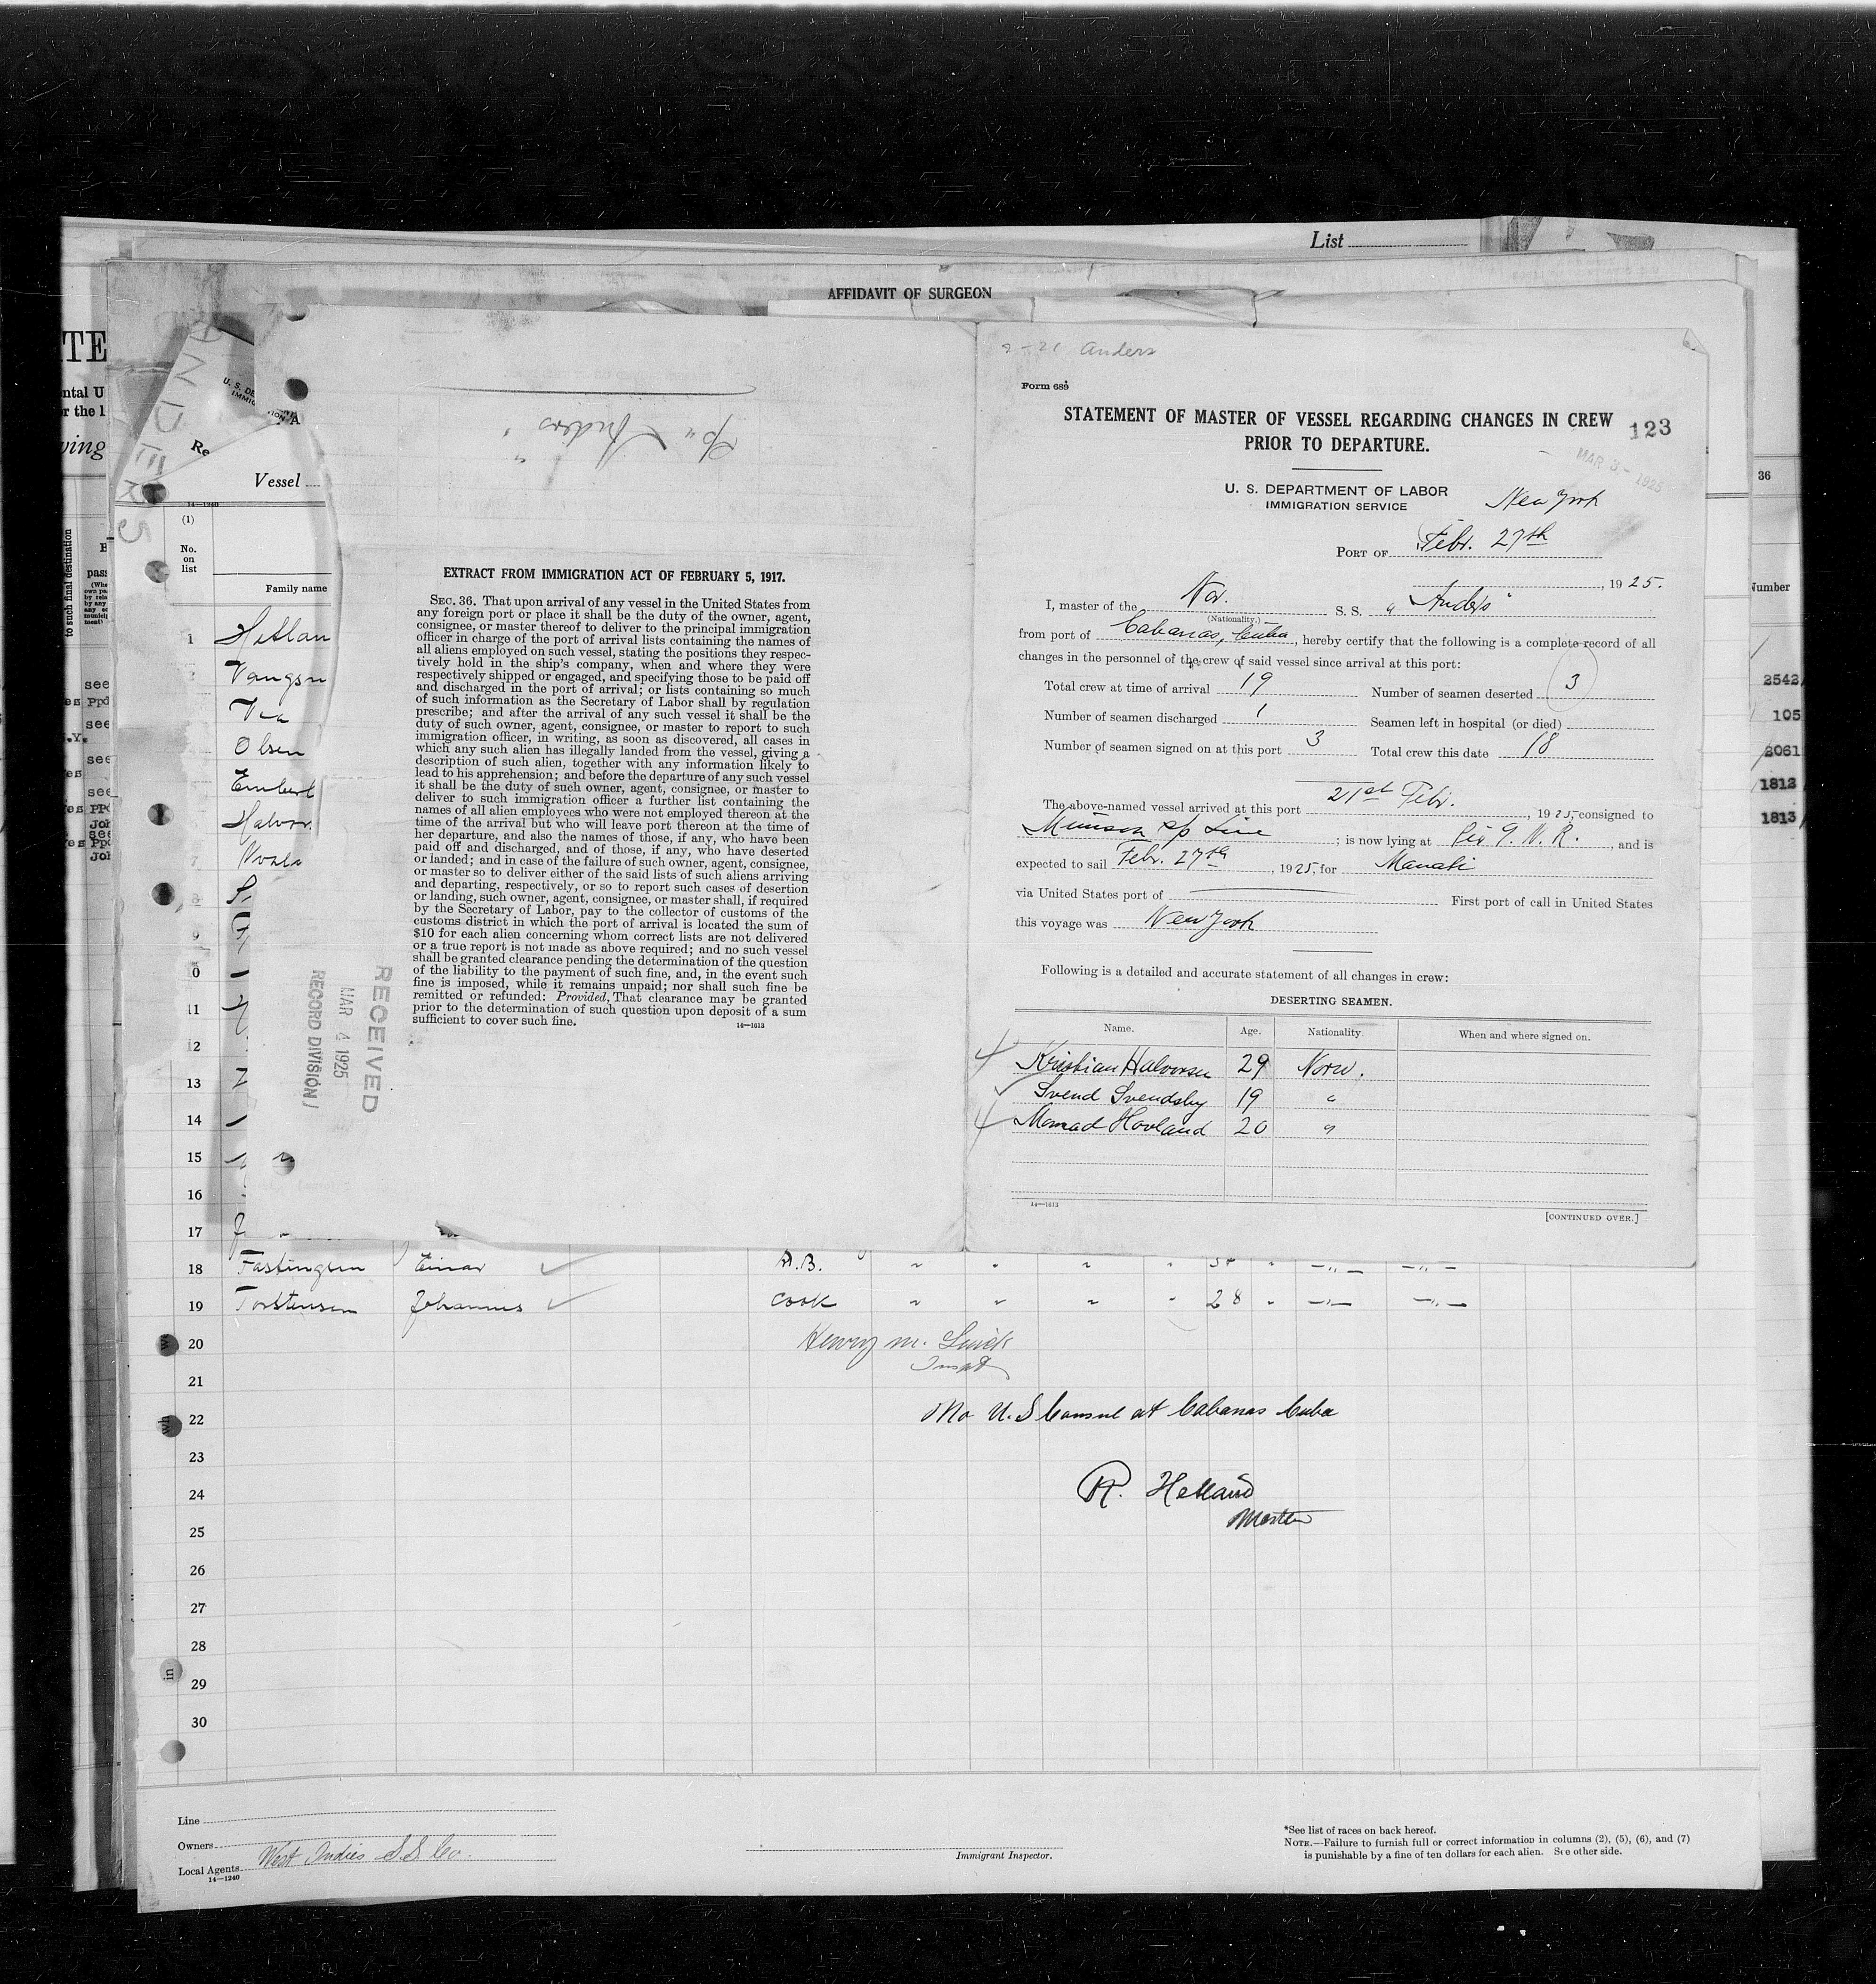 List
AFFIDAVIT OF SURGEON
TE
ntal U
r the l
ving
ANDERS
Re
Vessel
14—1240
(1)
No.
on
list
Family name
to such final destination
1
Vangsn
Olsen
7
8
9
10
11
12
13
14
15
16
17
18 Fastingsen Einar A.B.
19 Torstensen Johannes Cook 28
20
21
22
23
24
25
26
27
28
29
30
EXTRACT FROM IMMIGRATION ACT OF FEBRUARY 5, 1917.
SEC. 36. That upon arrival of any vessel in the United States from
any foreign port or place it shall be the duty of the owner, agent,
consignee, or master thereof to deliver to the principal immigration
officer in charge of the port of arrival lists containing the names of
all aliens employed on such vessel, stating the positions they respec-
tively hold in the ship's company, when and where they were
respectively shipped or engaged, and specifying those to be paid off
and discharged in the port of arrival; or lists containing so much
of such information as the Secretary of Labor shall by regulation
prescribe; and after the arrival of any such vessel it shall be the
duty of such owner, agent, consignee, or master to report to such
immigration officer, in writing, as soon as discovered, all cases in
which any such alien has illegally landed from the vessel, giving a
description of such alien, together with any information likely to
lead to his apprehension; and before the departure of any such vessel
it shall be the duty of such owner, agent, consignee, or master to
deliver to such immigration officer a further list containing the
names of all alien employees who were not employed thereon at the
time of the arrival but who will leave port thereon at the time of
her departure, and also the names of those, if any, who have been
paid off and discharged, and of those, if any, who have deserted
or landed; and in case of the failure of such owner, agent, consignee,
or master so to deliver either of the said lists of such aliens arriving
and departing, respectively, or so to report such cases of desertion
or landing, such owner, agent, consignee, or master shall, if required
by the Secretary of Labor, pay to the collector of customs of the
customs district in which the port of arrival is located the sum of
$10 for each alien concerning whom correct lists are not delivered
or a true report is not made as above required; and no such vessel
shall be granted clearance pending the determination of the question
of the liability to the payment of such fine, and, in the event such
fine is imposed, while it remains unpaid; nor shall such fine be
remitted or refunded: Provided, That clearance may be granted
prior to the determination of such question upon deposit of a sum
sufficient to cover such fine.
14—1613
RECEIVED
MAR 4 1925
RECORD DIVISION
Anders
Form 689
STATEMENT OF MASTER OF VESSEL REGARDING CHANGES IN CREW
PRIOR TO DEPARTURE.
123
MAR 3 - 1925
U. S. DEPARTMENT OF LABOR
IMMIGRATION SERVICE
New York
PORT OF Febr. 27th
, 1925.
I, master of the Nor. S. S. "Anders"
(Nationality.)
from port of Cabanas, Cuba, hereby certify that the following is a complete record of all
changes in the personnel of the crew of said vessel since arrival at this port:
Total crew at time of arrival 19 Number of seamen deserted 3
Number of seamen discharged 1 Seamen left in hospital (or died)
Number of seamen signed on at this port 3 Total crew this date 18
The above-named vessel arrived at this port 21st Febr., 1925, consigned to
Munson S/S Line; is now lying at Pier 9. N. R., and is
expected to sail Febr. 27th, 1925, for Manati
via United States port of First port of call in United States
this voyage was New York
Following is a detailed and accurate statement of all changes in crew:
DESERTING SEAMEN.
Name. Age. Nationality. When and where signed on.
Kristian Halvorsen 29 Norw.
Svend Svendsby 19 "
Monrad Hovland 20 "
14—1613
[CONTINUED OVER.]
36
Number
2542
105
2061
1812
1813
Henry M.
Inspt
No U.S Consul at Cabanas Cuba
R. Helland
Master
Line
Owners
Local Agents West Indies S.S Co.
14—1240
Immigrant Inspector.
*See list of races on back hereof.
NOTE.—Failure to furnish full or correct information in columns (2), (5), (6), and (7)
is punishable by a fine of ten dollars for each alien. See other side.